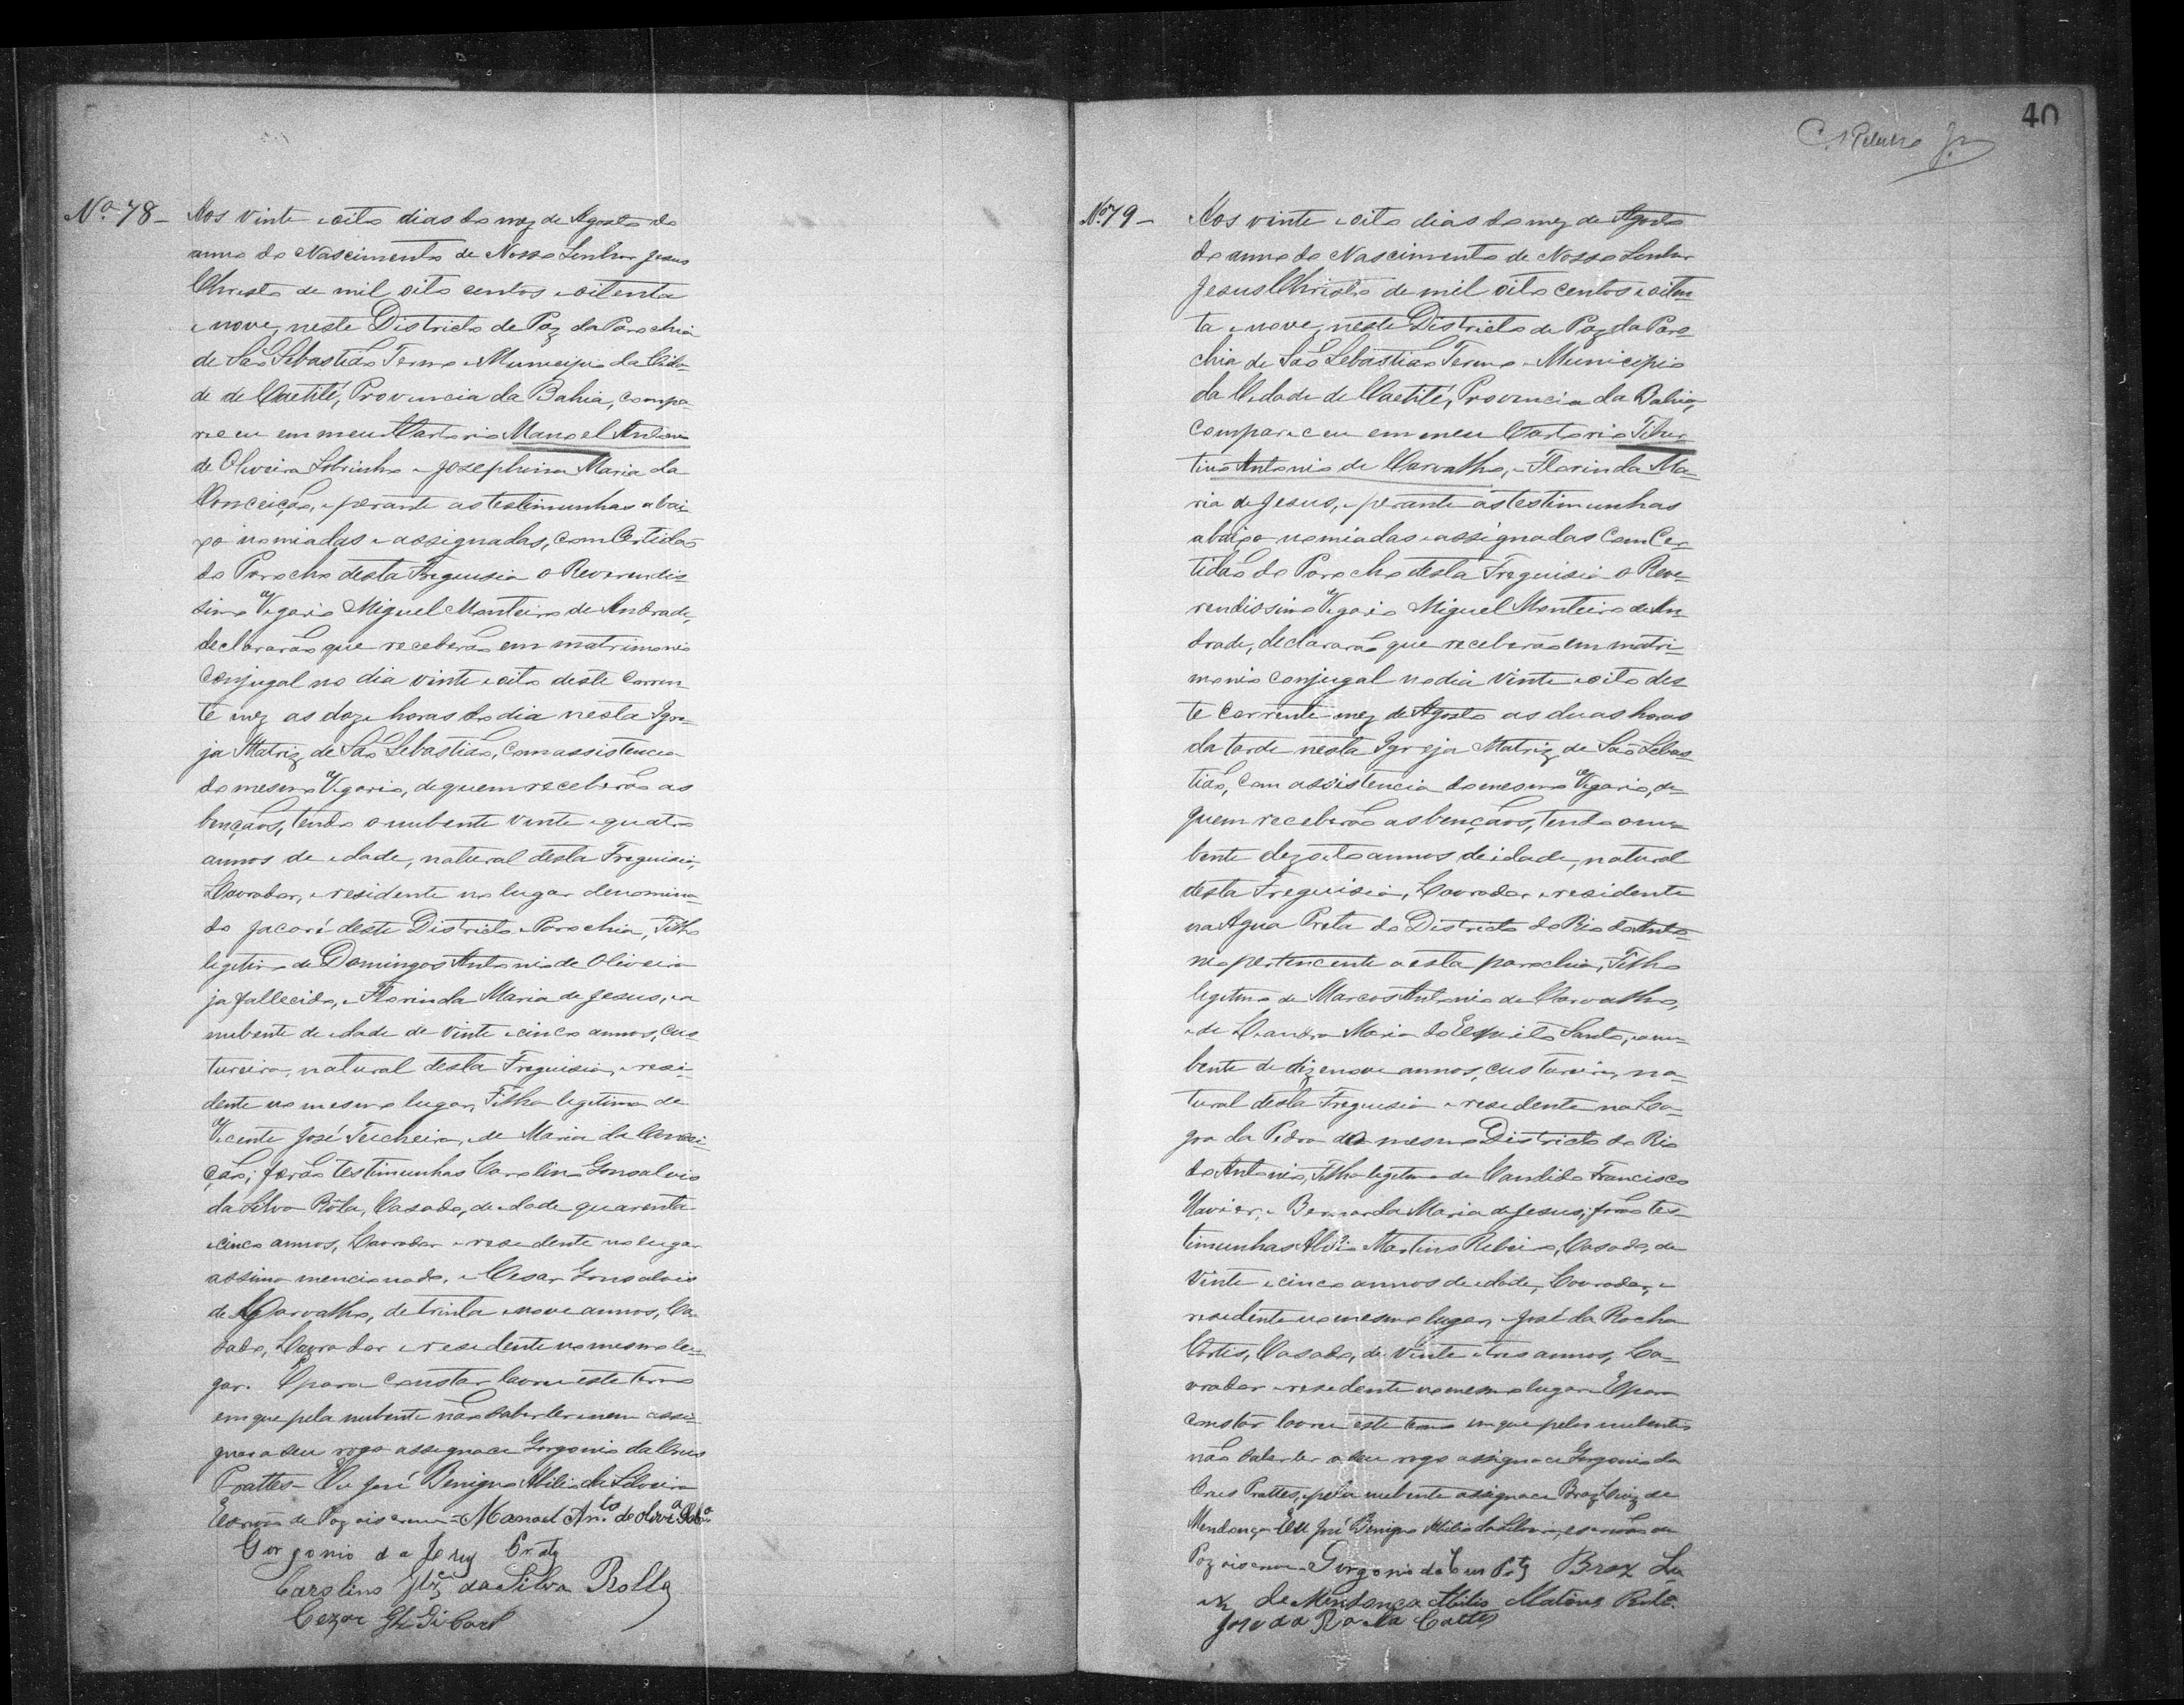 Nº 78 –
Aos vinte e oito dias do mez de Agosto do
anno do Nascimento de Nosso Senhor Jesus
Christo de mil oito centos e oitenta
e nove, neste Districto de Paz da Parochia
de São Sebastião Termo e Municipio da Cida-
de de Caetité, Provincia da Bahia, compa-
receu em meu Cartorio Manoel Antonio
de Oliveira Sobrinho e Josephina Maria da
Conceição, e perante as testimunhas abai-
xo nomiadas e assignadas, com Certidão
do Parocho desta Freguisia o Reverendis-
simo Vigario Miguel Monteiro de Andrade,
declararão que receberão em matrimonio
Conjugal no dia vinte e oito deste Corren-
te mez as doze horas do dia nesta Igre-
ja Matriz de São Sebastião, com assistencia
do mesmo Vigario, de quem receberão as
bençãos, tendo o nubente vinte e quatro
annos de idade, natural desta Freguisia,
Lavrador, e residente no lugar denomina-
do Jacaré deste Districto e Parochia, Filho
legitimo de Domingos Antonio de Oliveira
ja fallecido, e Florinda Maria de Jesus, e a
nubente de idade de vinte e cinco annos, cus-
tureira, natural desta Freguisia, e resi-
dente no mesmo lugar, Filha legitima de
Vicente José Teicheira, e de Maria da Concei-
ção; forão testimunhas Carolino Gonsalvis
da Silva Rôla, Casado, de idade quarenta
e cinco annos, Lavrador e residente no lugar
assima mencionado, e Cesar Gonsalvis
de Carvalho, de trinta e nove annos, Ca-
sado, Lavrador e residente no mesmo lu-
gar. E para constar lavrei este termo
em que pela nubente não saber ler e nem assi-
gnar a seu rogo assigna Gorgonio da Crus
Prattes – Eu José Benigno Abilio da Silveira
Escrivão de Paz o iscrevi = Manoel An.to de Olivª Sobº
Gorgonio da Cruz Prates
Carolino Glz da Silva Rolla
Cezar Glz Di Carv
40
C. Ribeiro Jr
Nº 79 –
Aos vinte e oito dias do mez de Agosto
do anno do Nascimento de Nosso Senhor
Jesus Christo de mil oito centos e oiten-
ta e nove, neste Districto de Paz da Paro-
chia de São Sebastião Termo e Municipio
da Cidade de Caetité, Provincia da Bahia,
compareceu em meu Cartorio Tibur-
tino Antonio de Carvalho, e Florinda Ma-
ria de Jesus, e perante as testimunhas
abaixo nomiadas e assignadas com Cer-
tidão do Parocho desta Freguisia o Reve-
rendissimo Vigario Miguel Monteiro de An-
drade, declararão que receberão em matri-
monio conjugal no dia vinte e oito des-
te corrente mez de Agosto as duas horas
da tarde nesta Igreja Matriz de São Sebas-
tião, com assistencia do mesmo Vigario, de
quem receberão as bençãos, tendo o nu-
bente dezoito annos de idade, natural
desta Freguisia, Lavrador e residente
na Agua Preta do Districto do Rio do Anto-
nio pertencente a esta parochia, Filho
legitimo de Marcos Antonio de Carvalho,
e de Leandra Maria do Espirito Santo, e a nu-
bente de dizenove annos, custureira, na-
tural desta Freguisia e residente na La-
goa da Pedra do mesmo Districto do Rio
do Antonio, Filha legitima de Candido Francisco
Xavier, e Bernarda Maria de Jesus; forão tes-
timunhas Abilio Martins Ribeiro, Casado, de
vinte e cinco annos de idade, Lavrador, e
residente no mesmo lugar, e José da Rocha
Cortis, Casado, de vinte e tres annos, La-
vrador e residente no mesmo lugar. E para
constar lavrei este termo em que pelos nubentes
não saber ler a seu rogo assigna Gorgonio da
Crus Prattes, e pela nubente assigna Braz Luiz de
Mendonça Eu José Benigno Abilio da Silveira, escrivão de
Paz o iscrevi = Gorgonio da Cruz Braz Lu
iz de Mendonça Abilio Matins Ribº
Jose da Rocha Cortes